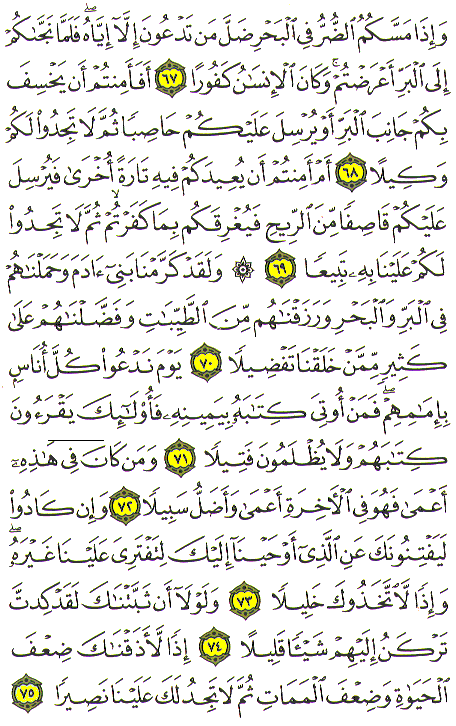 وَإِذَا مَسَّكُمُ ٱلضُّرُّ فِى ٱلْبَحْرِ ضَلَّ مَن تَدْعُونَ إِلَّآ إِيَّاهُ ۖ فَلَمَّا نَجَّىٰكُمْ
إِلَى ٱلْبَرِّ أَعْرَضْتُمْ ۚ وَكَانَ ٱلْإِنسَٰنُ كَفُورًا ٦٧ أَفَأَمِنتُمْ أَن يَخْسِفَ
بِكُمْ جَانِبَ ٱلْبَرِّ أَوْ يُرْسِلَ عَلَيْكُمْ حَاصِبًا ثُمَّ لَا تَجِدُوا۟ لَكُمْ
وَكِيلًا ٦٨ أَمْ أَمِنتُمْ أَن يُعِيدَكُمْ فِيهِ تَارَةً أُخْرَىٰ فَيُرْسِلَ
عَلَيْكُمْ قَاصِفًا مِّنَ ٱلرِّيحِ فَيُغْرِقَكُم بِمَا كَفَرْتُمْ ۙ ثُمَّ لَا تَجِدُوا۟
لَكُمْ عَلَيْنَا بِهِۦ تَبِيعًا ٦٩ ۞ وَلَقَدْ كَرَّمْنَا بَنِىٓ ءَادَمَ وَحَمَلْنَٰهُمْ
فِى ٱلْبَرِّ وَٱلْبَحْرِ وَرَزَقْنَٰهُم مِّنَ ٱلطَّيِّبَٰتِ وَفَضَّلْنَٰهُمْ عَلَىٰ
كَثِيرٍ مِّمَّنْ خَلَقْنَا تَفْضِيلًا ٧٠ يَوْمَ نَدْعُوا۟ كُلَّ أُنَاسٍۭ
بِإِمَٰمِهِمْ ۖ فَمَنْ أُوتِىَ كِتَٰبَهُۥ بِيَمِينِهِۦ فَأُو۟لَٰٓئِكَ يَقْرَءُونَ
كِتَٰبَهُمْ وَلَا يُظْلَمُونَ فَتِيلًا ٧١ وَمَن كَانَ فِى هَٰذِهِۦٓ
أَعْمَىٰ فَهُوَ فِى ٱلْءَاخِرَةِ أَعْمَىٰ وَأَضَلُّ سَبِيلًا ٧٢ وَإِن كَادُوا۟
لَيَفْتِنُونَكَ عَنِ ٱلَّذِىٓ أَوْحَيْنَآ إِلَيْكَ لِتَفْتَرِىَ عَلَيْنَا غَيْرَهُۥ ۖ
وَإِذًا لَّٱتَّخَذُوكَ خَلِيلًا ٧٣ وَلَوْلَآ أَن ثَبَّتْنَٰكَ لَقَدْ كِدتَّ
تَرْكَنُ إِلَيْهِمْ شَيْـًٔا قَلِيلًا ٧٤ إِذًا لَّأَذَقْنَٰكَ ضِعْفَ
ٱلْحَيَوٰةِ وَضِعْفَ ٱلْمَمَاتِ ثُمَّ لَا تَجِدُ لَكَ عَلَيْنَا نَصِيرًا ٧٥